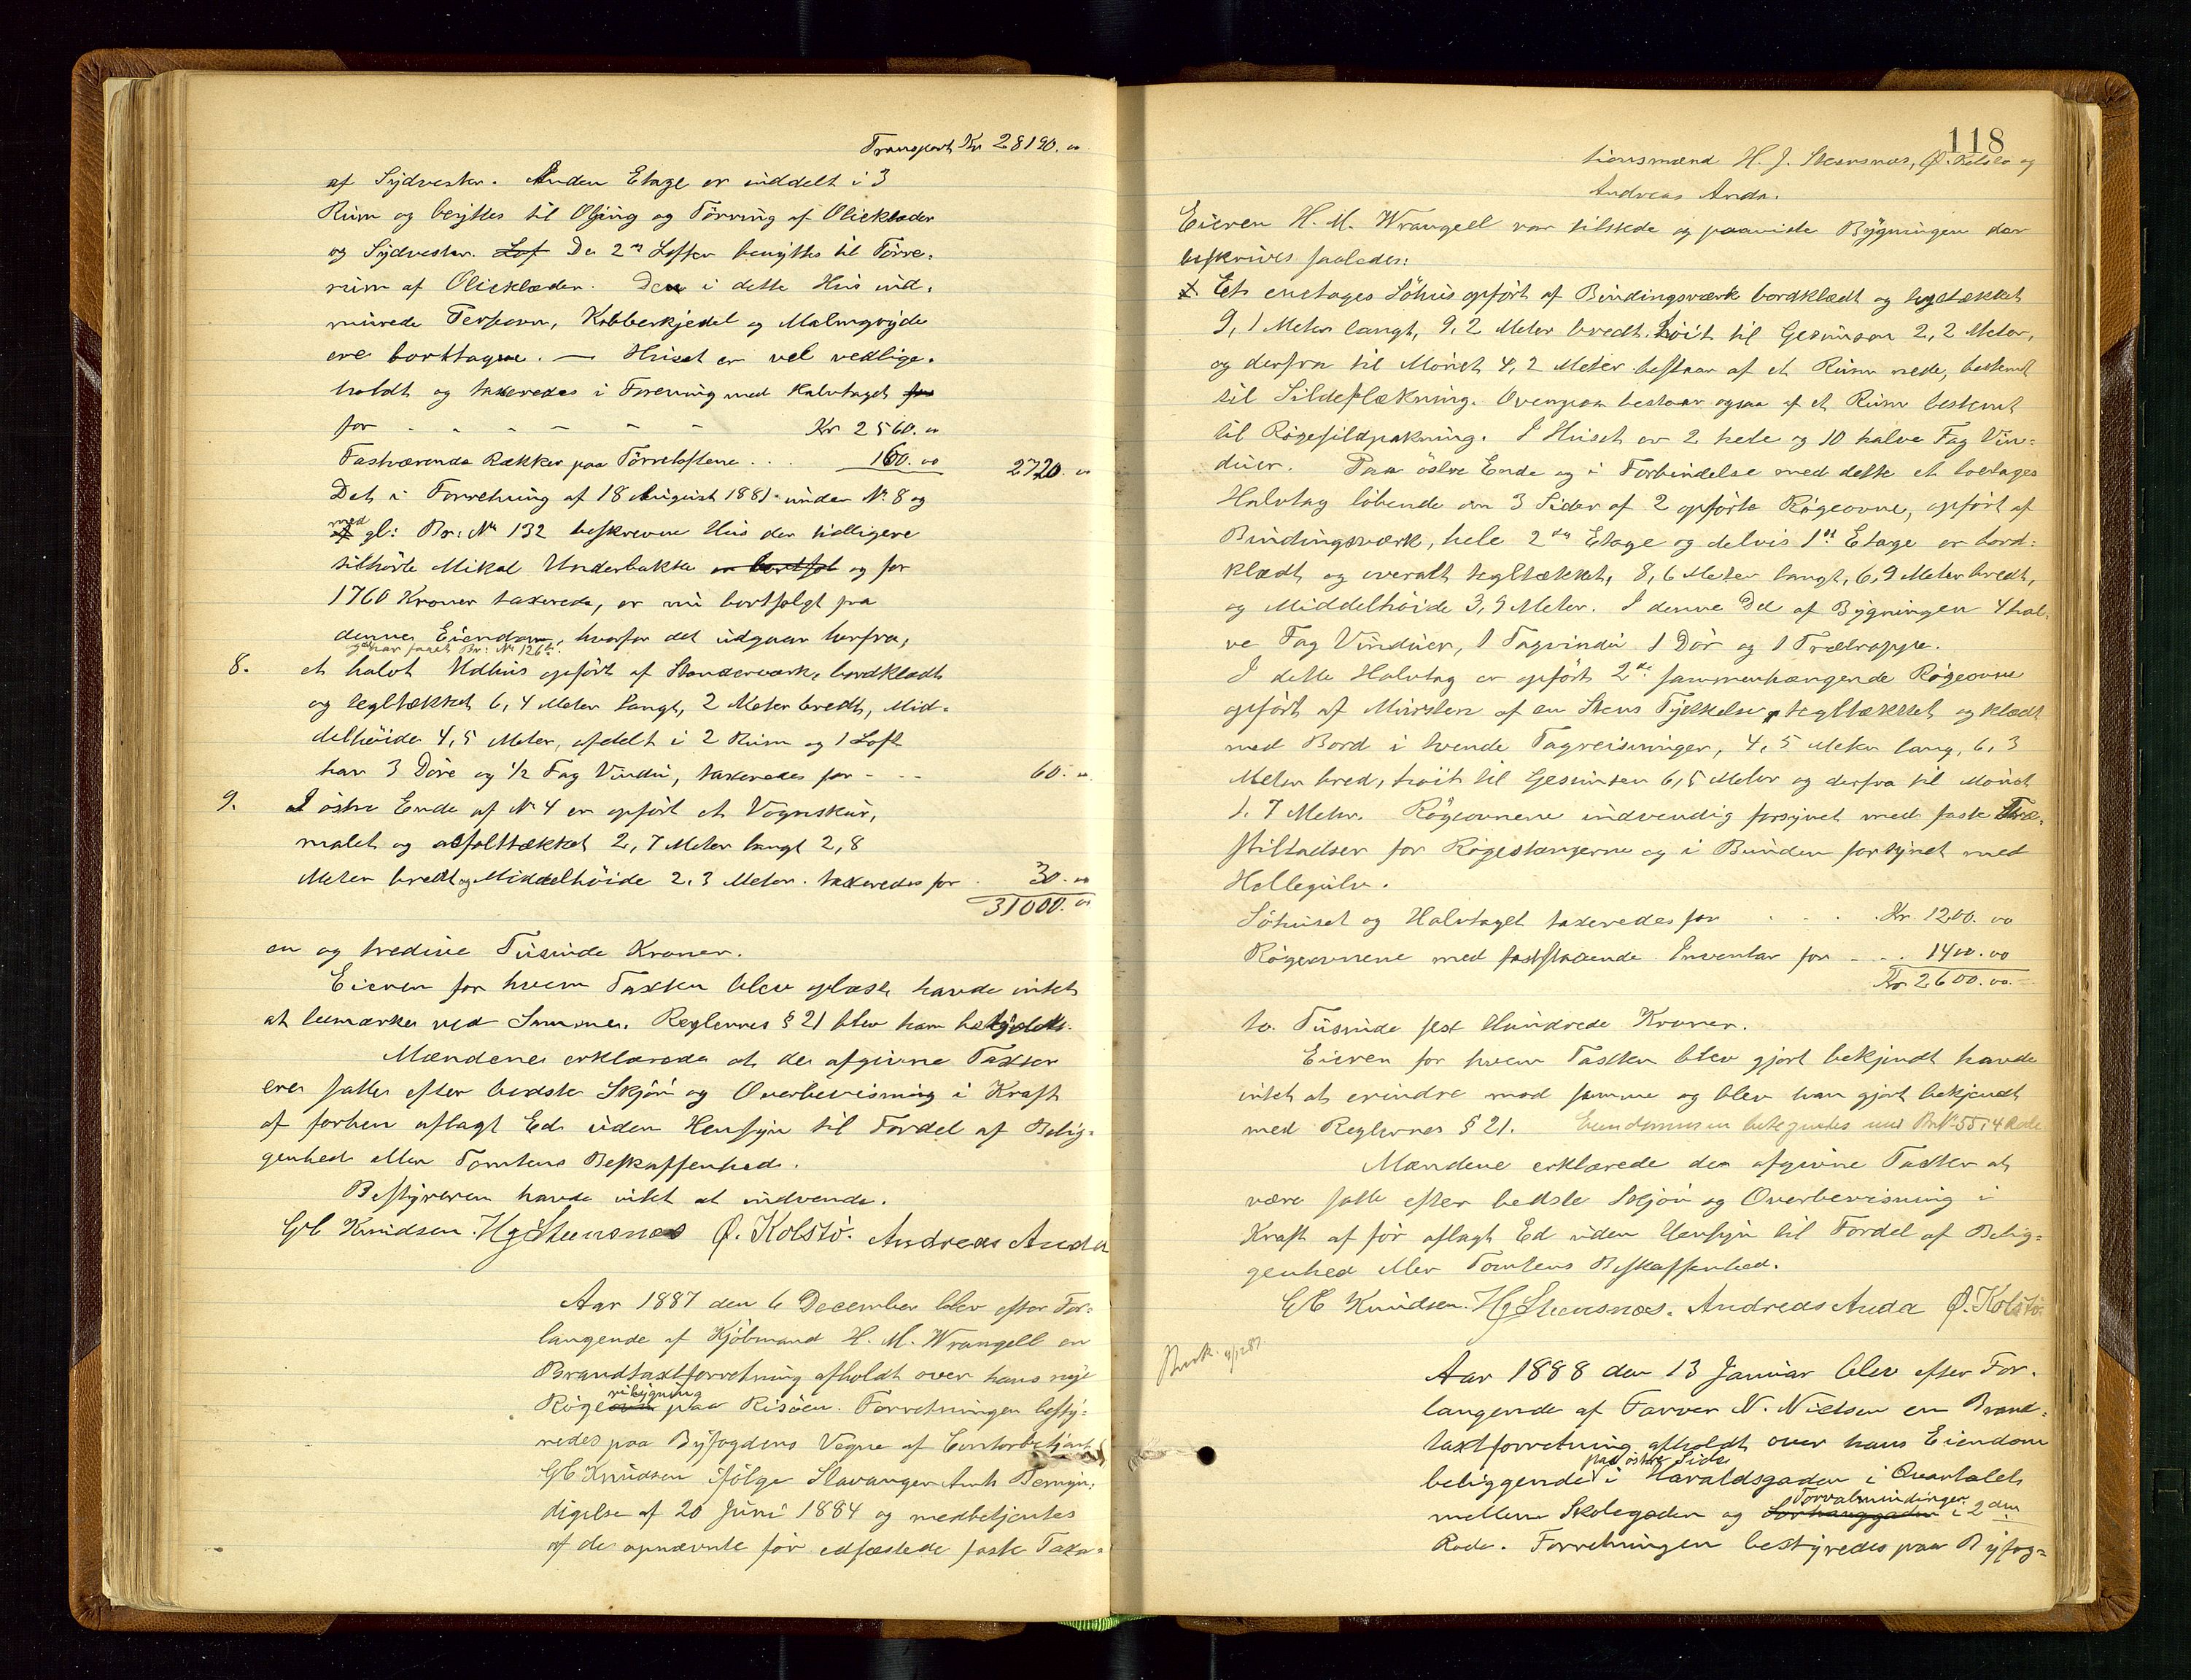 Transport Kr 28190. 00
af Sydvester. Anden Etage er inddelt i 3
Rum og benyttes til Oljing og Tørring af Olieklæder
og Sydvester. Lof De 2de Lofter benyttes til Tørre-
rum af Olieklæder. Den i dette Hus ind-
murede Kobberkjedel og Malmgryde
ere borttagne. — Huset er vel vedlige-
holdt og taxeredes i Forening med Halvtaget for
for - - - - - - Kr 2560. 00
Fastværende Rækker paa Tørreloftene . . . 160. 00 2720. 00
Det i Forretning af 18 August 1881 under No 8 og
med gl: Br: No 132 beskrevne Hus der tidligere
tilhørte Mikal Underbakke er bortsol og for
1760 Kroner taxerede, er nu bortsolgt fra
denne Eiendom, hvorfor det udgaar herfra,
og har faaet Br: No 126b.
8. et halvt Udhus opført af Standerværk, bordklædt
og tegltækket 6,4 Meter langt, 2 Meter bredt, Mid-
delhøide 4,5 Meter, afdelt i 2 Rum og 1 Loft
har 3 Døre og 1/2 Fag Vindu, taxeredes for - - - 60. 00
9. I østre Ende af No 4 er opført et Vognskur,
malet og asfalttækket 2,7 Meter langt 2,8
Meter bredt og Middelhøide 2,3 Meter. taxeredes for . 30. 00
31000. 00
en og tredive Tusinde Kroner.
Eieren for hvem Taxten blev oplæst havde intet
at bemærke ved Samme. Reglernes § 21 blev ham betydet.
Mændene erklærede at de afgivne Taxter
ere satte efter bedste Skjøn og Overbevisning i Kraft
af forhen aflagt Ed uden Hensyn til Fordel af Belig-
genhed eller Tomtens Beskaffenhed.
Bestyreren havde intet at indvende.
GC Knudsen. HJ Steensnæs Ø. Kolstø. Andreas Anda
Aar 1887 den 6 December blev efter For-
langende af Kjøbmand H. M. Wrangell en
Brandtaxtforretning afholdt over hans nye
Røgeovn paa Risøen. Forretningen besty-
redes paa Byfogdens Vegne af Contorbetjent
GC Knudsen ifølge Stavanger Amts Bemyn-
digelse af 20 Juni 1884 og medbetjentes
af de opnævnte før edfæstede faste Taxa-
118
tionsmænd H. J. Steensnæs, Ø. Kolstø og
Andreas Anda.
Eieren H. M. Wrangell var tilstede og paaviste Bygningen der
beskrives saaledes:
Et enetages Søhus opført af Bindingsværk bordklædt og tegltækket
9,1 Meter langt, 9,2 Meter bredt. høit til Gesimsen 2,2 Meter,
og derfra til Mønet 4,2 Meter bestaar af et Rum nede, bestemt
til Sildeflækning. Ovenpaa bestaar ogsaa af et Rum bestemt
til Røgesildpakning. I Huset er 2 hele og 10 halve Fag Vin-
duer. Paa østre Ende og i Forbindelse med dette et toetages
Halvtag løbende om 3 Sider af 2 opførte Røgeovne, opført af
Bindingsværk, hele 2den Etage og delvis 1ste Etage er bord-
klædt og overalt tegltækket, 8,6 Meter langt, 6,9 Meter bredt,
og Middelhøide 3,9 Meter. I denne Del af Bygningen 4 hal-
ve Fag Vinduer, 1 Tagvindu 1 Dør og 1 Trætrappe.
I dette Halvtag er opført 2de sammenhængende Røgeovne
opført af Mursten af en Stens Tykkelse, tegltækket og klædt
med Bord i tvende Tagreisninger, 4,5 Meter lang, 6,3
Meter bred, høit til Gesimsen 6,5 Meter og derfra til Mønet
1,7 Meter. Røgeovnene indvendig forsynet med faste Træ-
stilladser for Røgestængerne og i Bunden forsynet med
Hellegulv.
Søhuset og Halvtaget taxeredes for . . . . Kr. 1200. 00
Røgeovnene med faststaaende Inventar for - - . 1400. 00
Kr 2600. 00.
to Tusinde sex Hundrede Kroner.
Eieren for hvem Taxten blev gjort bekjendt havde
intet at erindre mod samme og blev han gjort bekjendt
med Reglernes § 21. Eiendommen betegnes med Br No 55 i 4 Rode
Mændene erklærede den afgivne Taxten at
være satte efter bedste Skjøn og Overbevisning i
Kraft af før aflagt Ed uden Hensyn til Fordel af Belig-
genhed eller Tomtens Beskaffenhed.
GC Knudsen. HJ Steensnæs. Andreas Anda Ø. Kolstø.
Aar 1888 den 13 Januar blev efter For-
langende af Farver N. Nielsen en Brand-
taxtforretning afholdt over hans Eiendom
beliggende paa østre Side i Haraldsgaden i Qvartalet
mellem Skolegaden og Torvalmindingen i 2den
Rode. Forretningen bestyredes paa Byfog-